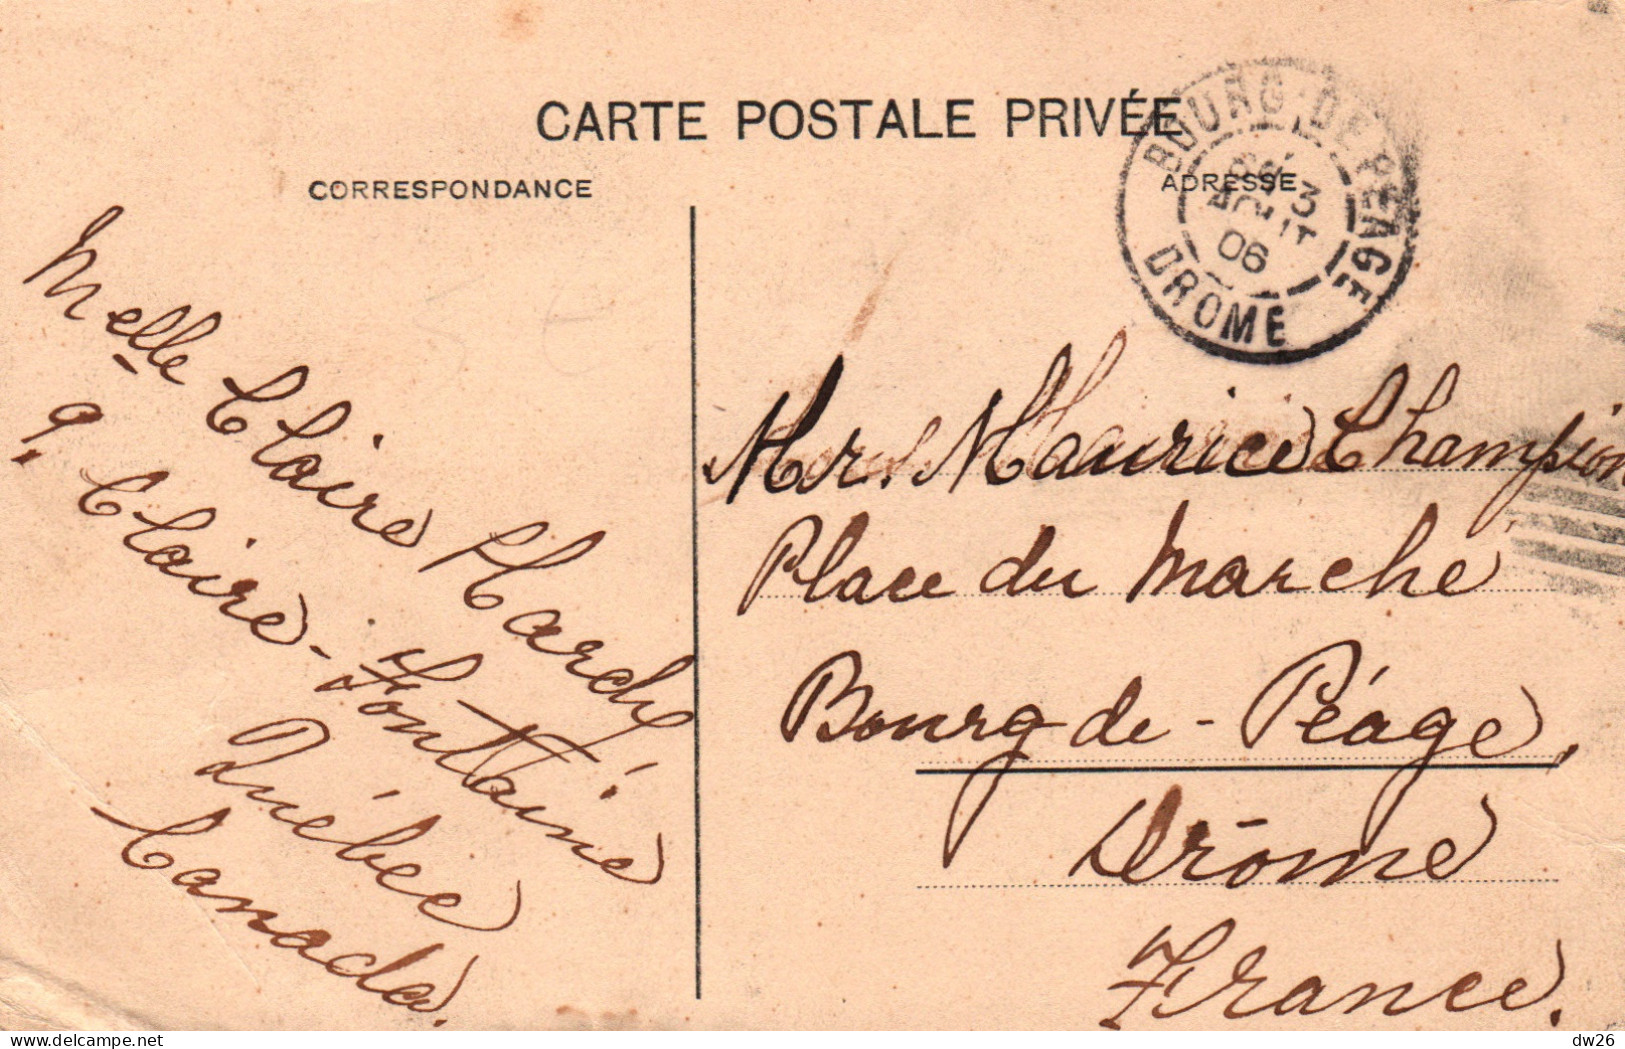 CARTE POSTALE PRIVÉE
CORRESPONDANCE
ADRESSE
BOURG-DE-PEAGE
3
AOUT
06
DROME
Melle Claire
9, Claire-Fontaine
Québec
Canada.
Mr. Maurice Champion
Place du Marché
Bourg de-Péage,
Drôme
France.
dw26